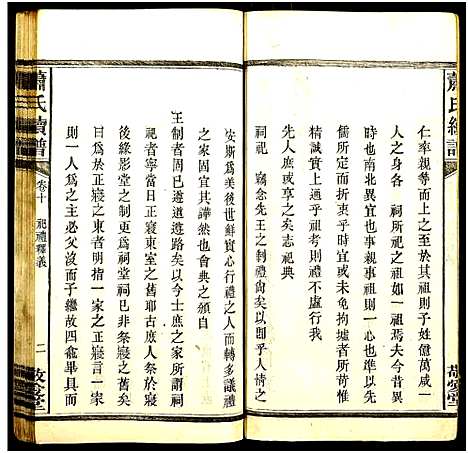 蕭氏續譜
敬愛堂
仁率親等而上之至於其祖則子姓億萬咸一
人之身各 祠所祀之祖如一祖焉夫今昔異
時也南北異宜也事親事祖則一心也準以先
儒所定而折衷乎時尚末可免拘墟者所倘
精誠實有以上通乎祖考則禮不虛行我
先人庶或享之矣志祀典
祠祀 竊念先王之制禮尚矣以即乎人情之
安斯爲美後世鮮實心行禮之人而轉多議禮
之家固宜其譁然也會典之頒自
王制者甯已遵道遵路矣以今士庶之家所謂祠
祀者甯當日正寢東室之舊耶古庶人祭於寢
後緣影堂之制更爲祠堂祠已非祭寢之舊矣
曰為於正寢之東者明指一家之正寢言一家
則一人爲之主必父沒而子繼故四龕畢具而
蕭氏續譜
卷十 祀禮釋義 二
敬愛堂